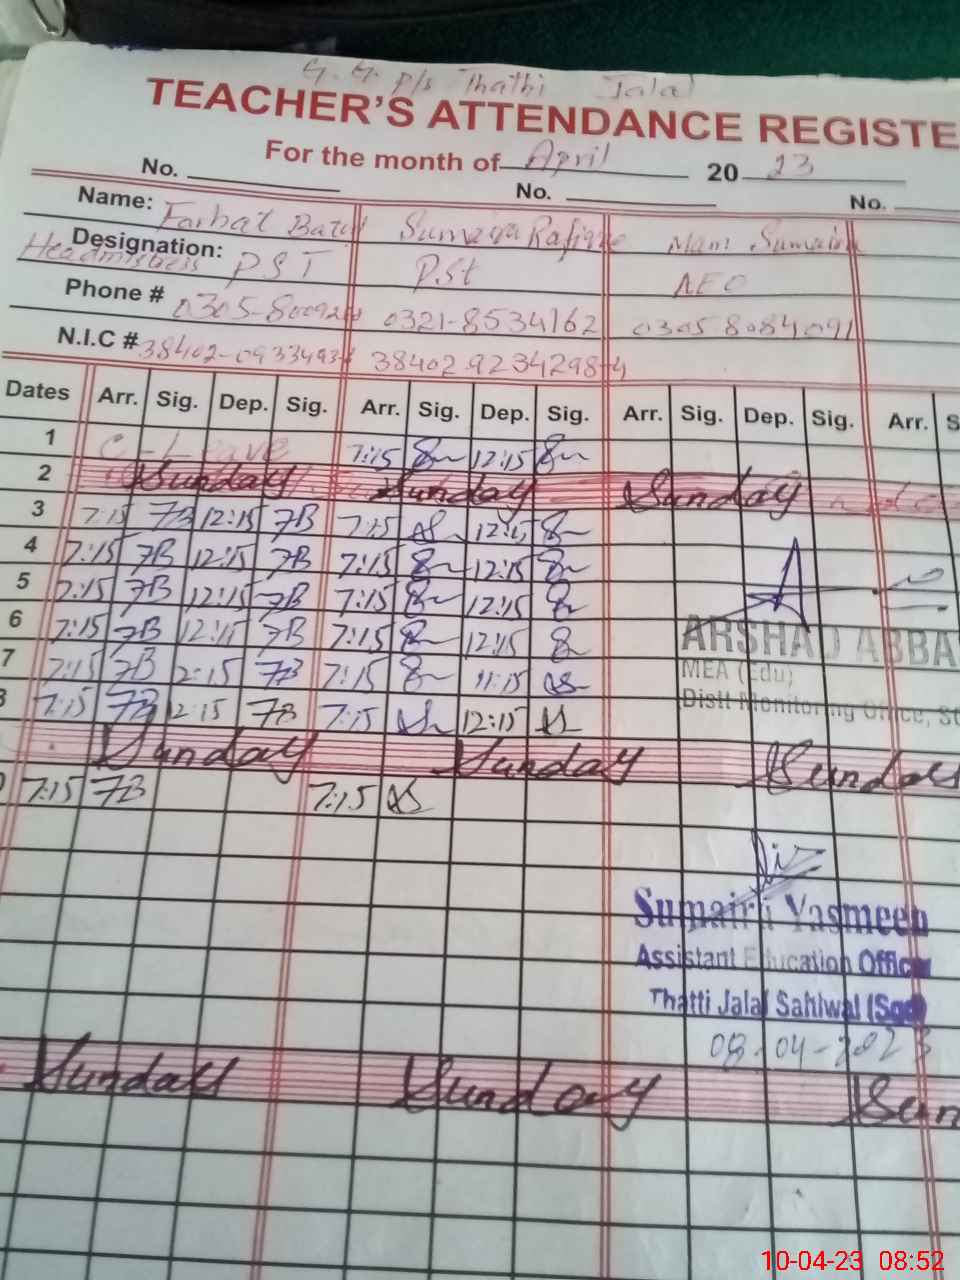 G. G. P/S Thathi Jalal
TEACHER'S ATTENDANCE REGISTE
For the month of April 2023
No. No. No.
Name: Farhat Batul Sumaira Rafique Mam Sumaira
Designation: Headmistress PST PSt AEO
Phone # 0321-8534162 03058084091
N.I.C #
Dates Arr. Sig. Dep. Sig. Arr. Sig. Dep. Sig. Arr. Sig. Dep. Sig. Arr. S
1 C-Leave 7:15 12:15
2 Sunday Sunday Sunday
3 7:15 FB 12:15 FB 7:15 12:15
4 7:15 FB 12:15 FB 7:15 12:15
5 7:15 FB 12:15 FB 7:15 12:15
6 7:15 FB 12:15 FB 7:15 12:15
7 7:15 FB 12:15 FB 7:15 11:15
8 7:15 FB 12:15 FB 7:15 12:15
ARSHAD ABBA
MEA (Edu)
Distt Monitoring Office, S
Sunday Sunday Sunday
0 7:15 FB 7:15
Sumaira Yasmeen
Assistant Education Officer
Thatti Jalal Sahiwal (Sgd)
08-04-2023
Sunday Sunday Sun
10-04-23 08:52